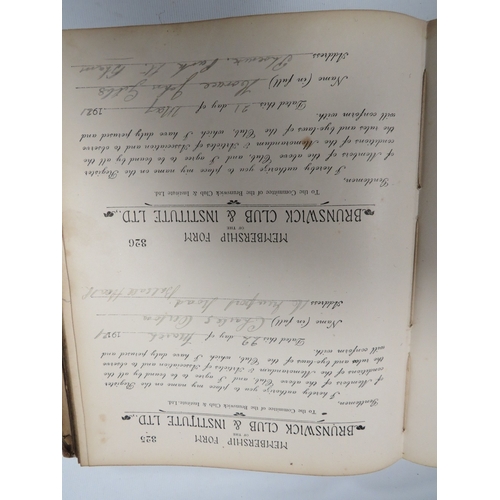 MEMBERSHIP FORM 325
OF THE
BRUNSWICK CLUB & INSTITUTE LTD.,
To the Committee of the Brunswick Club & Institute, Ltd.
Gentlemen,
I hereby authorize you to place my name on the Register
of Members of the above Club, and I agree to be bound by all the
conditions of Memorandum & Articles of Association to observe
the rules and bye-laws of the Club, which I have duly perused and
will conform with.
Dated this 22 day of March 192
Name (in full) Charles
Address Road
MEMBERSHIP FORM 326
OF THE
BRUNSWICK CLUB & INSTITUTE LTD.,
To the Committee of the Brunswick Club & Institute Ltd.
Gentlemen,
I hereby authorize you to place my name on the Register
of Members of the above Club, and I agree to be bound by all the
conditions of Memorandum & Articles of Association to observe
and the rules and bye-laws of the Club, which I have duly perused and
will conform with.
Dated this 21 day of May 192
Name (in full) Horace John
Address Park